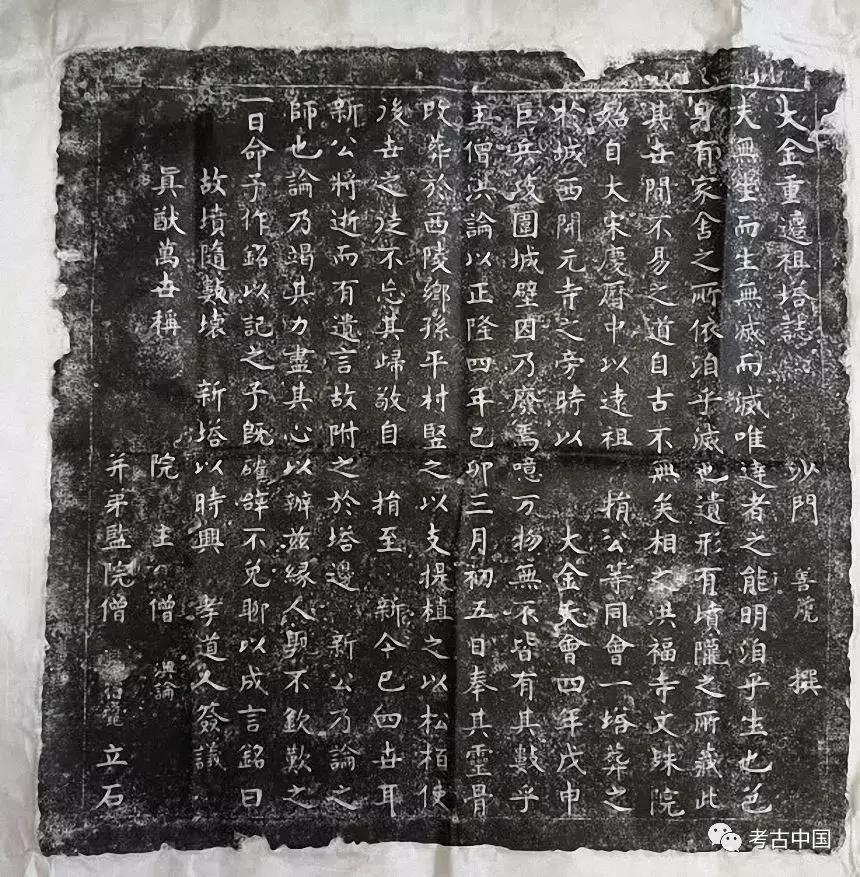 大金重遷祖塔誌
沙門 善虎 撰
夫無生而生無滅而滅唯達者之能明洎乎生也芭
身有家舍之所依洎乎滅也遺形有墳隴之所藏此
其世間不易之道自古不無矣相之洪福寺文殊院
始自大宋慶曆中以遠祖 㨋公等同會一塔葬之
於城西開元寺之旁時以 大金天會四年戊申
巨兵攻圍城壁因乃廢焉噫万物無不皆有其數乎
主僧洪論以正隆四年己卯三月初五日奉其靈骨
改葬於西陵鄉孫平村竪之以支提植之以松栢使
後世之徒不忘其歸敬自 㨋至 新今已四世耳
新公將逝而有遺言故附之於塔邊 新公乃論之
師也論乃竭其力盡其心以辦兹緣人覩不欽歎之
一日命予作銘以記之予旣確辞不免聊以成言銘曰
故墳隨數壊 新塔以時興 孝道人僉議
眞猷萬世稱
院主僧 洪論
并弟監院僧 立石
考古中国